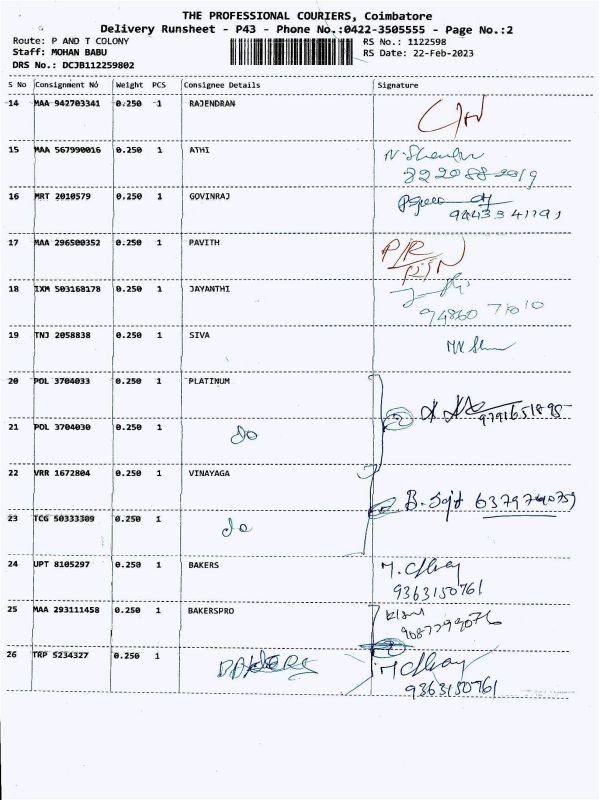 THE PROFESSIONAL COURIERS, Coimbatore
Delivery Runsheet - P43 - Phone No.:0422-3505555 - Page No.:2
Route: P AND T COLONY RS No.: 1122598
Staff: MOHAN BABU RS Date: 22-Feb-2023
DRS No.: DCJB112259802
S No Consignment No Weight PCS Consignee Details Signature
14 MAA 942703341 0.250 1 RAJENDRAN
15 MAA 567990016 0.250 1 ATHI
822088 2019
16 MRT 2010579 0.250 1 GOVINRAJ
17 MAA 296500352 0.250 1 PAVITH
18 IXM 503168178 0.250 1 JAYANTHI
94860 71010
19 TNJ 2058838 0.250 1 SIVA
20 POL 3704033 0.250 1 PLATINUM
9791651898
21 POL 3704030 0.250 1 do
22 VRR 1672804 0.250 1 VINAYAGA
6379790759
23 TCG 50333309 0.250 1 do
24 UPT 8105297 0.250 1 BAKERS
9363150761
25 MAA 293111458 0.250 1 BAKERSPRO
26 TRP 5234327 0.250 1 BAKERS
9363150761